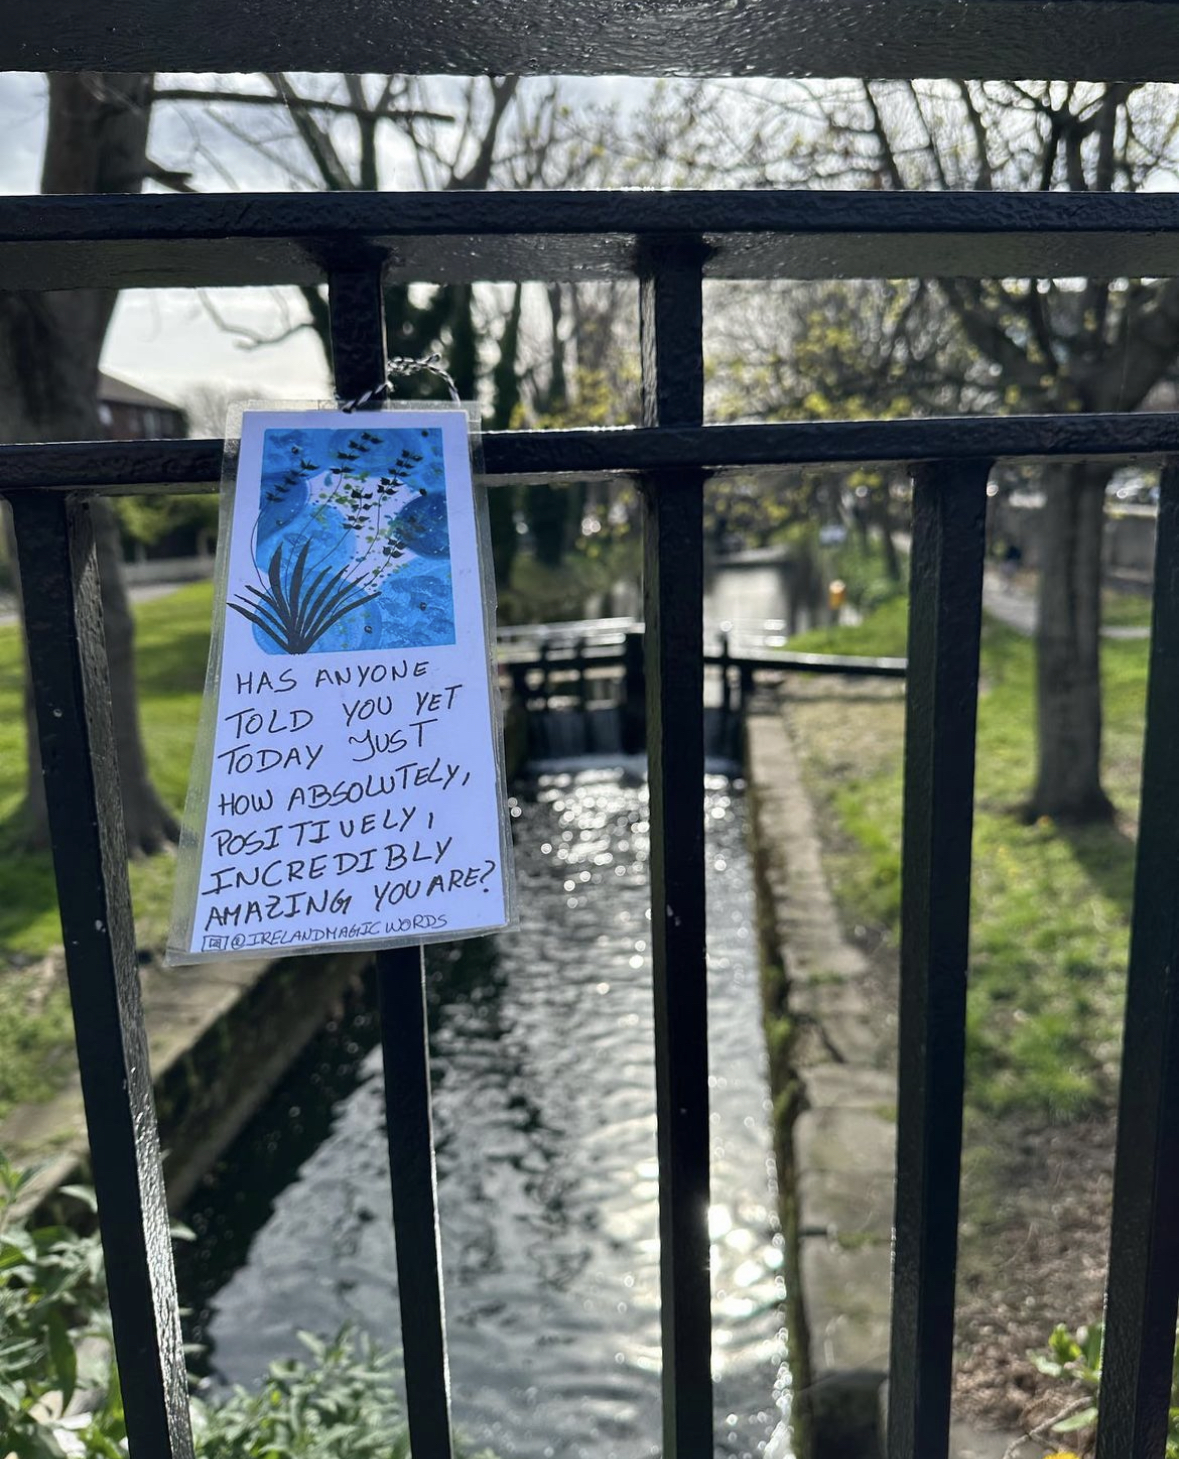 HAS ANYONE
TOLD YOU YET
TODAY JUST
HOW ABSOLUTELY,
POSITIVELY,
INCREDIBLY
AMAZING YOU ARE?
@IRELANDMAGICWORDS